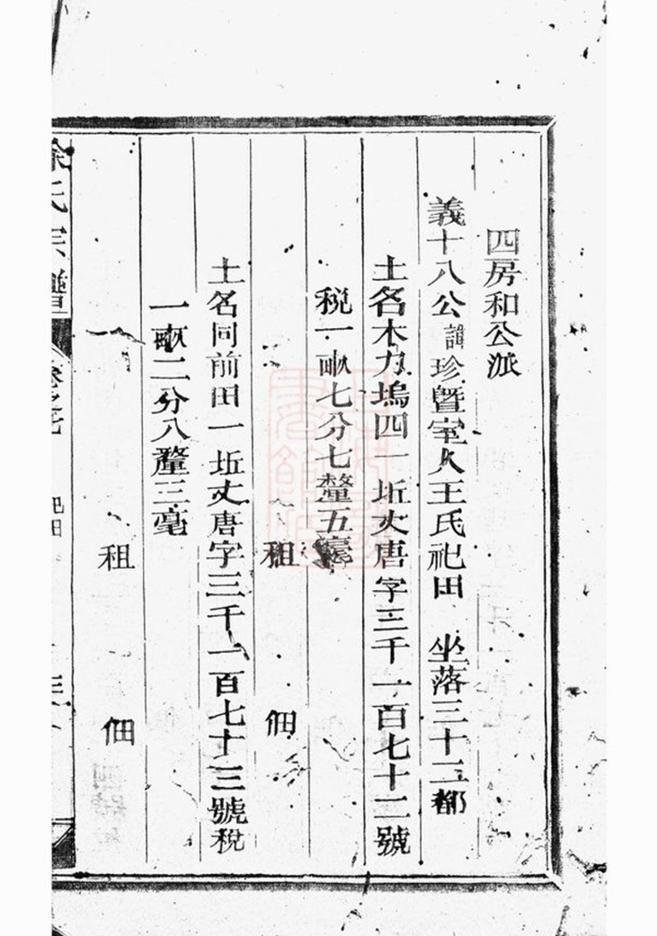 四房和公派
義十八公諱珍暨室人王氏祀田 坐落三十二都
土名木力塢四一坵丈唐字三千一百七十二號
稅一畝七分七釐五毫
租 佃
土名同前田一坵丈唐字三千一百七十三號稅
一畝二分八釐三毫
租 佃
徐氏宗譜 卷之 祀田